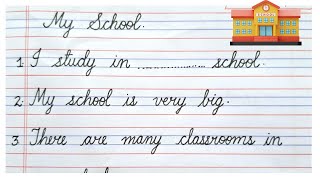 My School.
1. I study in .................... school.
2. My school is very big.
3. There are many classrooms in